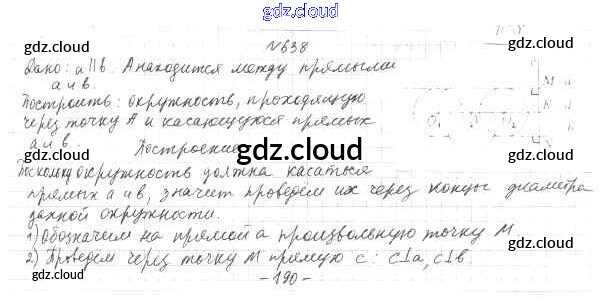 gdz.cloud
№638
gdz.cloud gdz.cloud
Дано: a||b. A находится между прямыми
a и b.
Построить: окружность, проходящую
через точку A и касающуюся прямых
a и b. Построение
gdz.cloud gdz.cloud
gdz.cloud
Поскольку окружность должна касаться
прямых a и b, значит проведём их через концы диаметра
данной окружности.
1) Обозначим на прямой a произвольную точку M
2) Проведём через точку M прямую c: c⊥a, c⊥b.
gdz.cloud gdz.cloud
-190-
M
a
K
O₁
O₂
N
b